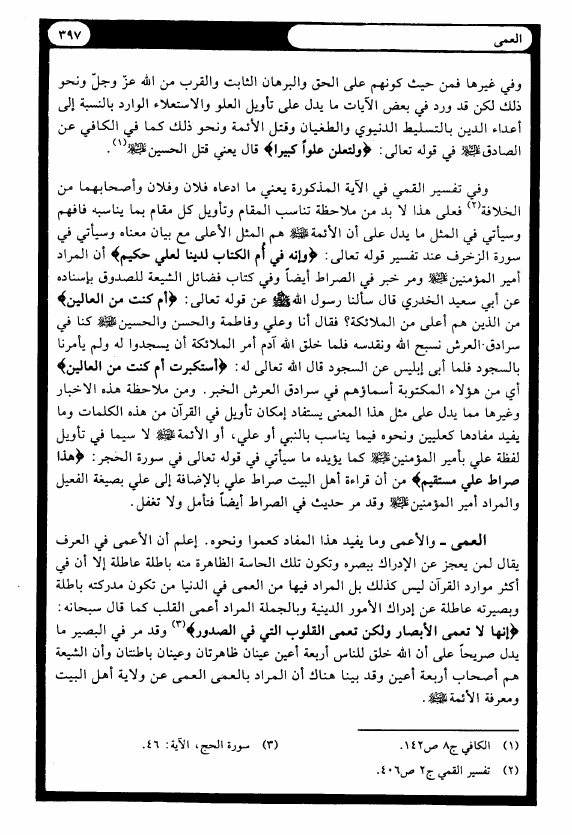 العمى
٣٩٧
وفي غيرها فمن حيث كونهم على الحق والبرهان الثابت والقرب من الله عزّ وجلّ ونحو
ذلك لكن قد ورد في بعض الآيات ما يدل على تأويل العلو والاستعلاء الوارد بالنسبة إلى
أعداء الدين بالتسليط الدنيوي والطغيان وقتل الأئمة ونحو ذلك كما في الكافي عن
الصادق ﷺ في قوله تعالى: ﴿ولتعلن علواً كبيرا﴾ قال يعني قتل الحسين ﷺ(١).
وفي تفسير القمي في الآية المذكورة يعني ما ادعاه فلان وفلان وأصحابهما من
الخلافة(٢) فعلى هذا لا بد من ملاحظة تناسب المقام وتأويل كل مقام بما يناسبه فافهم
وسيأتي في المثل ما يدل على أن الأئمة ﷺ هم المثل الأعلى مع بيان معناه وسيأتي في
سورة الزخرف عند تفسير قوله تعالى: ﴿وإنه في أُم الكتاب لدينا لعلي حكيم﴾ أن المراد
أمير المؤمنين ﷺ ومر خبر في الصراط أيضاً وفي كتاب فضائل الشيعة للصدوق بإسناده
عن أبي سعيد الخدري قال سألنا رسول الله ﷺ عن قوله تعالى: ﴿أم كنت من العالين﴾
من الذين هم أعلى من الملائكة؟ فقال أنا وعلي وفاطمة والحسن والحسين ﷺ كنا في
سرادق العرش نسبح الله ونقدسه فلما خلق الله آدم أمر الملائكة أن يسجدوا له ولم يأمرنا
بالسجود فلما أبى إبليس عن السجود قال الله تعالى له: ﴿أستكبرت أم كنت من العالين﴾
أي من هؤلاء المكتوبة أسماؤهم في سرادق العرش الخبر. ومن ملاحظة هذه الاخبار
وغيرها مما يدل على مثل هذا المعنى يستفاد إمكان تأويل في القرآن من هذه الكلمات وما
يفيد مفادها كعليين ونحوه فيما يناسب بالنبي أو علي، أو الأئمة ﷺ لا سيما في تأويل
لفظة علي بأمير المؤمنين ﷺ كما يؤيده ما سيأتي في قوله تعالى في سورة الحجر: ﴿هذا
صراط علي مستقيم﴾ من أن قراءة أهل البيت صراط علي بالإضافة إلى علي بصيغة الفعيل
والمراد أمير المؤمنين ﷺ وقد مر حديث في الصراط أيضاً فتأمل ولا تغفل.
العمى ـ والأعمى وما يفيد هذا المفاد كعموا ونحوه. إعلم أن الأعمى في العرف
يقال لمن يعجز عن الإدراك ببصره وتكون تلك الحاسة الظاهرة منه باطلة عاطلة إلا أن في
أكثر موارد القرآن ليس كذلك بل المراد فيها من العمى في الدنيا من تكون مدركته باطلة
وبصيرته عاطلة عن إدراك الأمور الدينية وبالجملة المراد أعمى القلب كما قال سبحانه:
﴿إنها لا تعمى الأبصار ولكن تعمى القلوب التي في الصدور﴾(٣) وقد مر في البصير ما
يدل صريحاً على أن الله خلق للناس أربعة أعين عينان ظاهرتان وعينان باطنتان وأن الشيعة
هم أصحاب أربعة أعين وقد بينا هناك أن المراد بالعمى العمى عن ولاية أهل البيت
ومعرفة الأئمة ﷺ.
(١) الكافي ج٨ ص١٤٢.
(٢) تفسير القمي ج٢ ص٤٠٦.
(٣) سورة الحج، الآية: ٤٦.